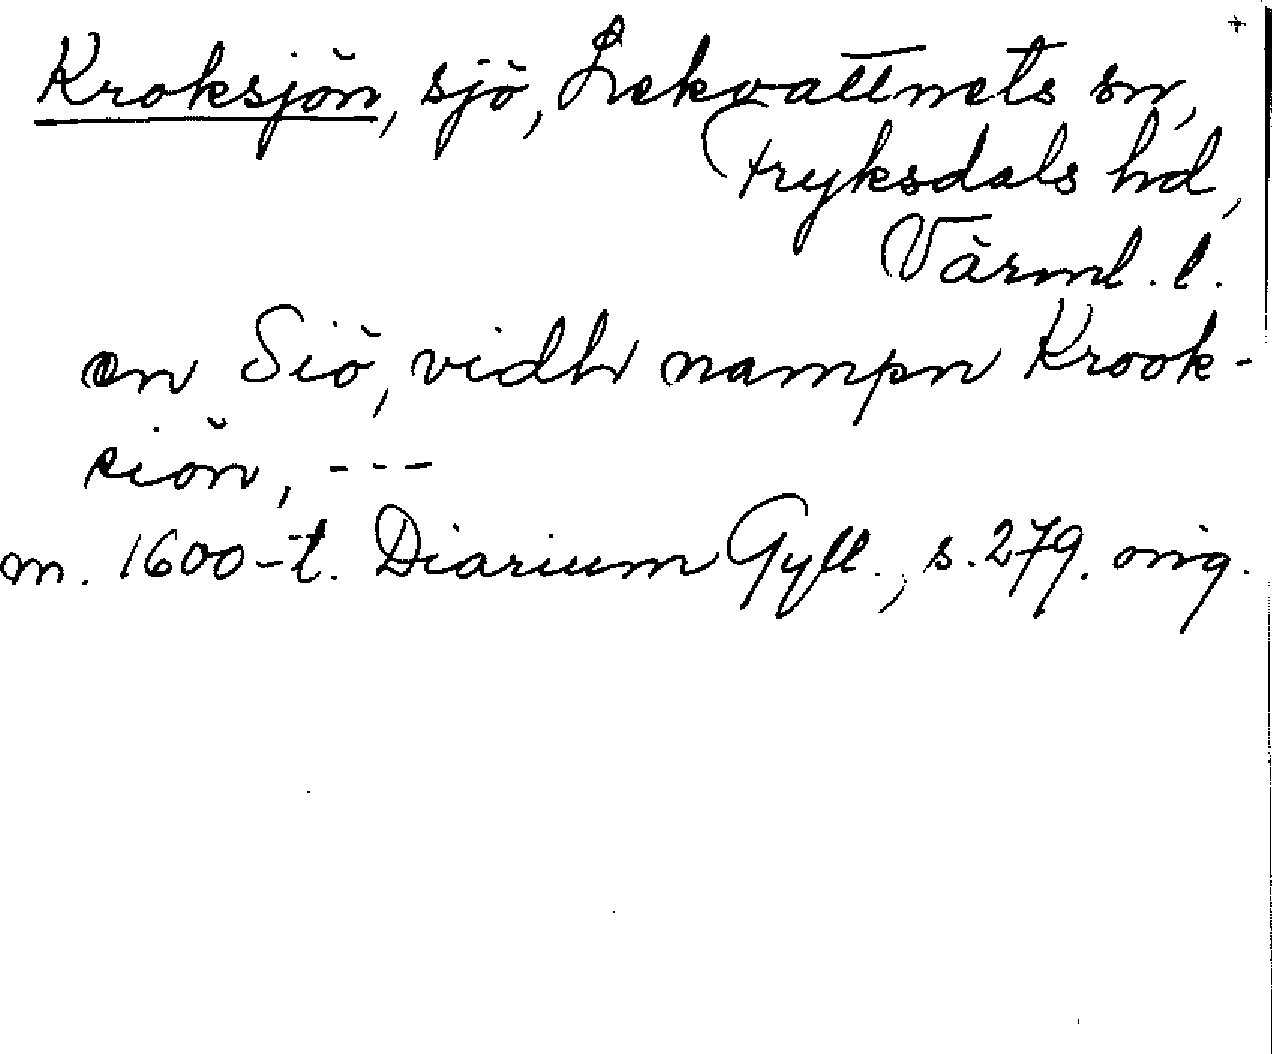 +
Kroksjön, sjö, Lekvattnets sn,
Fryksdals hd,
Värml. l.
en Siö, vidh nampn Krook-
siön, ---
m. 1600-t. Diarium Gyll., s. 279. orig.